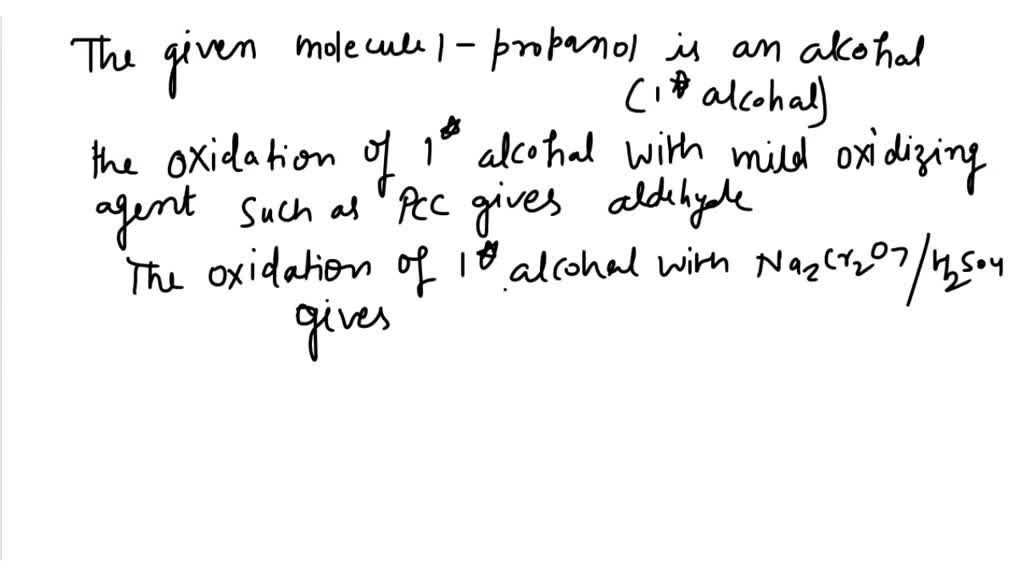 The given molecule 1-propanol is an alcohal
(1° alcohal)
the oxidation of 1° alcohal with mild oxidizing
agent such as PCC gives aldehyde
The oxidation of 1° alcohal with Na2Cr2O7/H2SO4
gives